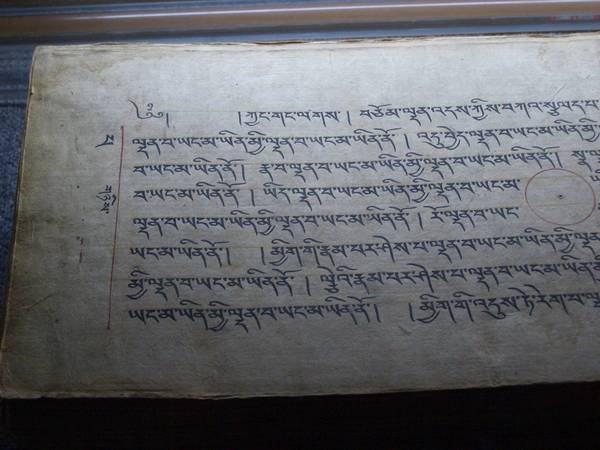 ༄༅། །ཀྱང་གང་ལགས། བཅོམ་ལྡན་འདས་ཀྱིས་བཀའ་སྩལད་པ་
ལྡན་བ་ཡང་མ་ཡིན་མྱི་ལྡན་བ་ཡང་མ་ཡིན་ནོ། །འདུ་བྱེད་ལྡན་བ་ཡང་མ་ཡིན་མྱི་
བ་ཡང་མ་ཡིན་ནོ། རྣ་བ་ལྡན་བ་ཡང་མ་ཡིན་མྱི་ལྡན་བ་ཡང་མ་ཡིན་ནོ། སྣ་
བ་ཡང་མ་ཡིན་ནོ། །ཡིད་ལྡན་བ་ཡང་མ་ཡིན་མྱི་ལྡན་བ་ཡང་མ་
ལྡན་བ་ཡང་མ་ཡིན་མྱི་ལྡན་བ་ཡང་མ་ཡིན་ནོ། །རོ་ལྡན་བ་ཡང་
ཡང་མ་ཡིན་ནོ། །མྱིག་གི་རྣམ་པར་ཤེས་པ་ལྡན་བ་ཡང་མ་ཡིན་མྱི་ལྡན་
མྱི་ལྡན་བ་ཡང་མ་ཡིན་ནོ། ལྕེའི་རྣམ་པར་ཤེས་པ་ལྡན་བ་ཡང་མ་ཡིན་
ཡང་མ་ཡིན་མྱི་ལྡན་བ་ཡང་མ་ཡིན་ནོ། །མྱིག་གི་འདུས་ཏེ་རེག་པ་